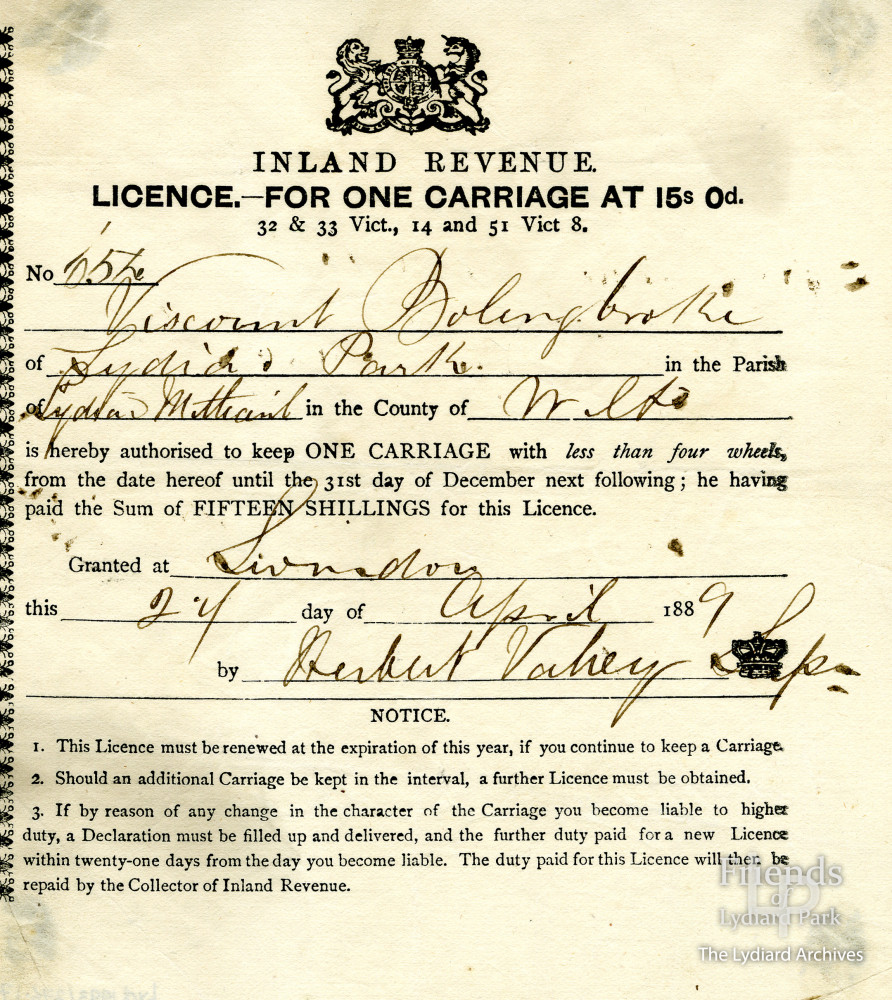 INLAND REVENUE.
LICENCE.—FOR ONE CARRIAGE AT 15s 0d.
32 & 33 Vict., 14 and 51 Vict 8.
No
Viscount Bolingbroke
of Lydiard Park. in the Parish
of Lydiard in the County of Wilts
is hereby authorised to keep ONE CARRIAGE with less than four wheels,
from the date hereof until the 31st day of December next following; he having
paid the Sum of FIFTEEN SHILLINGS for this Licence.
Granted at Swindon
this 24 day of April 1889
by Herbert Vahey
NOTICE.
1. This Licence must be renewed at the expiration of this year, if you continue to keep a Carriage.
2. Should an additional Carriage be kept in the interval, a further Licence must be obtained.
3. If by reason of any change in the character of the Carriage you become liable to higher
duty, a Declaration must be filled up and delivered, and the further duty paid for a new Licence
within twenty-one days from the day you become liable. The duty paid for this Licence will then be
repaid by the Collector of Inland Revenue.
Friends
of
LP
Lydiard Park
The Lydiard Archives